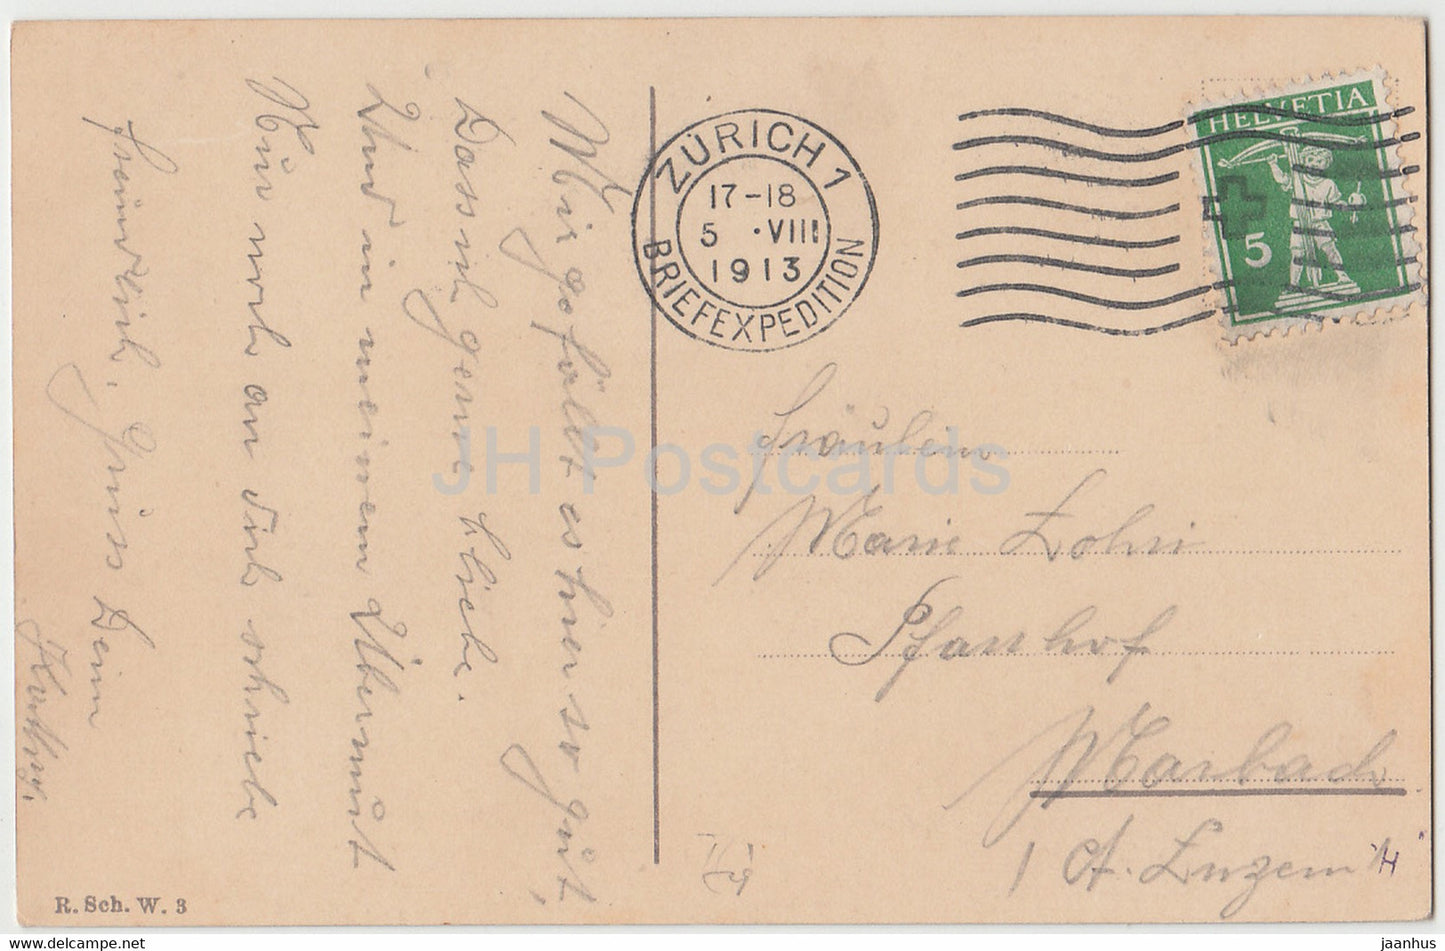 Mir gefällt es hier so gut,
Dass ich gerne bliebe.
Und in meinem Übermut
Nur noch an Dich schriebe
freundlich. Gruss Deine
ZÜRICH 1
17-18
5 ·VIII
1913
BRIEFEXPEDITION
HELVETIA
5
Fräulein
Marie Zohri
Pfarrhof
Marbach
Ct. Luzern
R. Sch. W. 3
JH Postcards
jaanhus